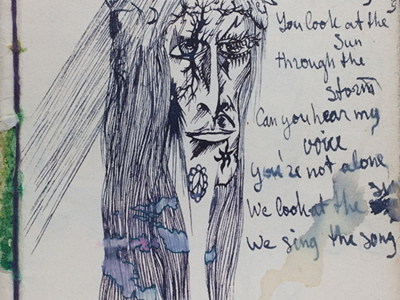 You look at the
Sun
through the
storm
Can you hear my
voice
You're not alone
We look at the
We sing the song